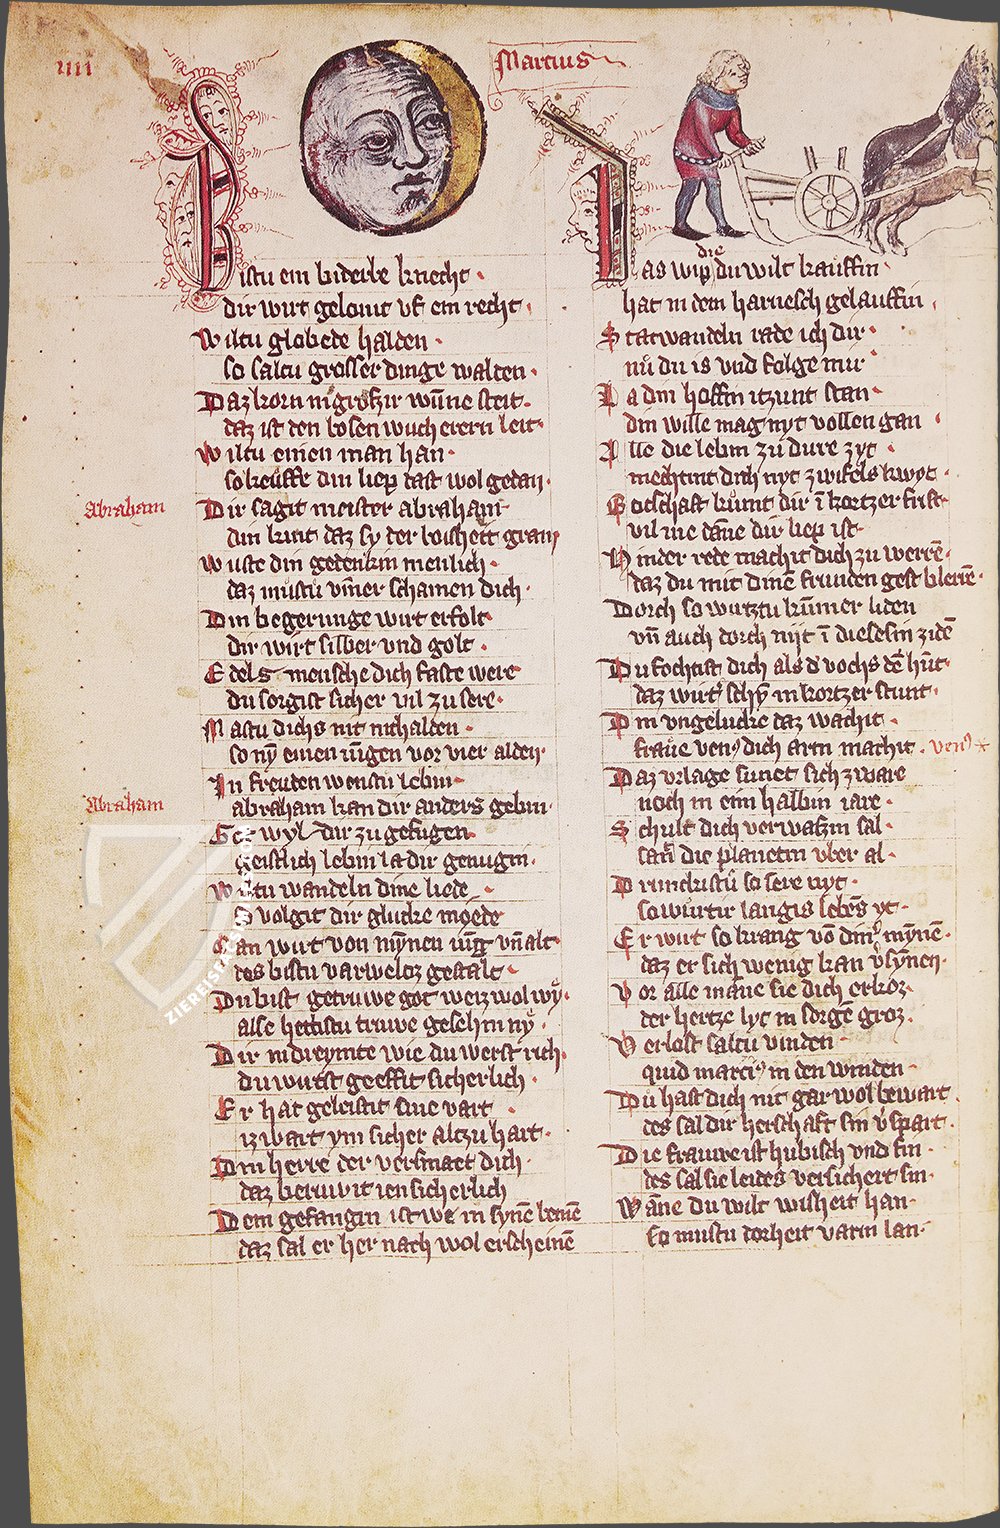 IIII
Martius
Bistu ein biderbe knecht ·
dir wirt gelonit uf ein recht ·
Wiltu globede halden ·
so saltu grosser dinge walden ·
Daz korn in grosir wūne steit ·
daz ist den bosen wucherern leit ·
Wiltu einen man han ·
so keuffe din liep dast wol getan ·
Abraham
Dir sagit meister abraham
din kint daz sy der boisheit gram
Wuste din gedenkin menlich ·
daz mustu ūmer schamen dich ·
Din begerunge wirt erfolt ·
dir wirt silber und golt ·
Edels mensche dich faste were
du sorgist sicher vil zu sere ·
Mastu dichs nit nithalden ·
so nȳ einen iūgen vor vier alden ·
In freuden wenstu lebin ·
Abraham
abraham kan dir anders gebin ·
Got wyl dir zu gefugen
geistlich lebin la dir genugin ·
Wiltu wandeln dine liede ·
so volgit dir glucke moede
Man wirt von mȳnen iūg vn̄ alt ·
des bistu varweloz gestalt ·
Du bist getruwe got weiz wol wy ·
alse hettistu truwe gesehin ny ·
Dir indreymte wie du werst rich ·
du wurst geeffit sicherlich ·
Er hat geleistit sine vart ·
iz wart ym sicher alczu hart ·
Din herre der versmaet dich ·
daz beruwit ien sicherlich
Dem gefangin ist we in synē beinē
daz sal er her nach wol erscheinē
Das wip die du wilt kauffin ·
hat in dem harnesch gelauffin ·
Statwandeln rade ich dir ·
nů du is und folge mir
La din hoffin itzunt stan ·
din wille mag nyt vollen gan ·
Alle die lebin zu dure zyt ·
mechtint dich nyt zwifels kwyt ·
Botschaft kůmt dir ī kortzer frist
vil me dāne dir liep ist ·
Hinder rede machit dich zu werrē ·
daz du mit dinē frunden gest blerrē ·
Dorch so wurztu kūmer liden
vn̄ auch dorch nijt ī diesesin zidē
Du fochtist dich als d' vochs dē hūt ·
daz wirt schȳ in kortzer stunt ·
Din ungelucke daz wachit ·
frauwe ven9 dich arm machit · ven9
Daz urlage sunet sich zware
noch in eim halbin iare ·
Schult dich verwassin sal ·
san die planetin uber al ·
Drunckistu so sere nyt ·
so wurtir langis lebēs zyt ·
Er wirt so krang vō diner mȳnē ·
daz er sich wenig kan vsȳnen ·
Vor alle māne sie dich erkoz ·
der hertze lyt in sorgē groz ·
Verlost saltu vinden ·
quid marci9 in den winden ·
Du hast dich nit gar wol bewart ·
des sal dir herschaft sin vspart ·
Die frauwe ist hubisch und fin ·
des sal sie leides versichert sin ·
Wāne du wilt wisheit han ·
so mustu dorheit varin lan ·
ZIEREIS FAKSIMILES.COM